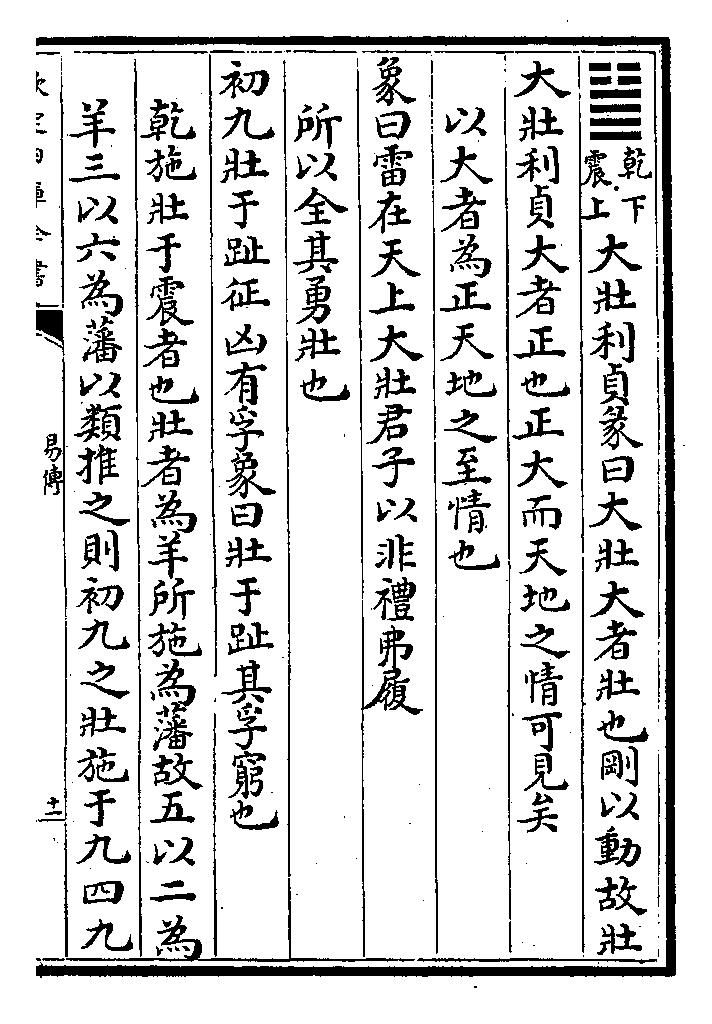 ䷡
乾下
震上
大壯利貞彖曰大壯大者壯也剛以動故壯
大壯利貞大者正也正大而天地之情可見矣
以大者為正天地之至情也
象曰雷在天上大壯君子以非禮弗履
所以全其勇壯也
初九壯于趾征凶有孚象曰壯于趾其孚窮也
乾施壯于震者也壯者為羊所施為藩故五以二為
羊三以六為藩以類推之則初九之壯施于九四九
欽定四庫全書
易傳
十一